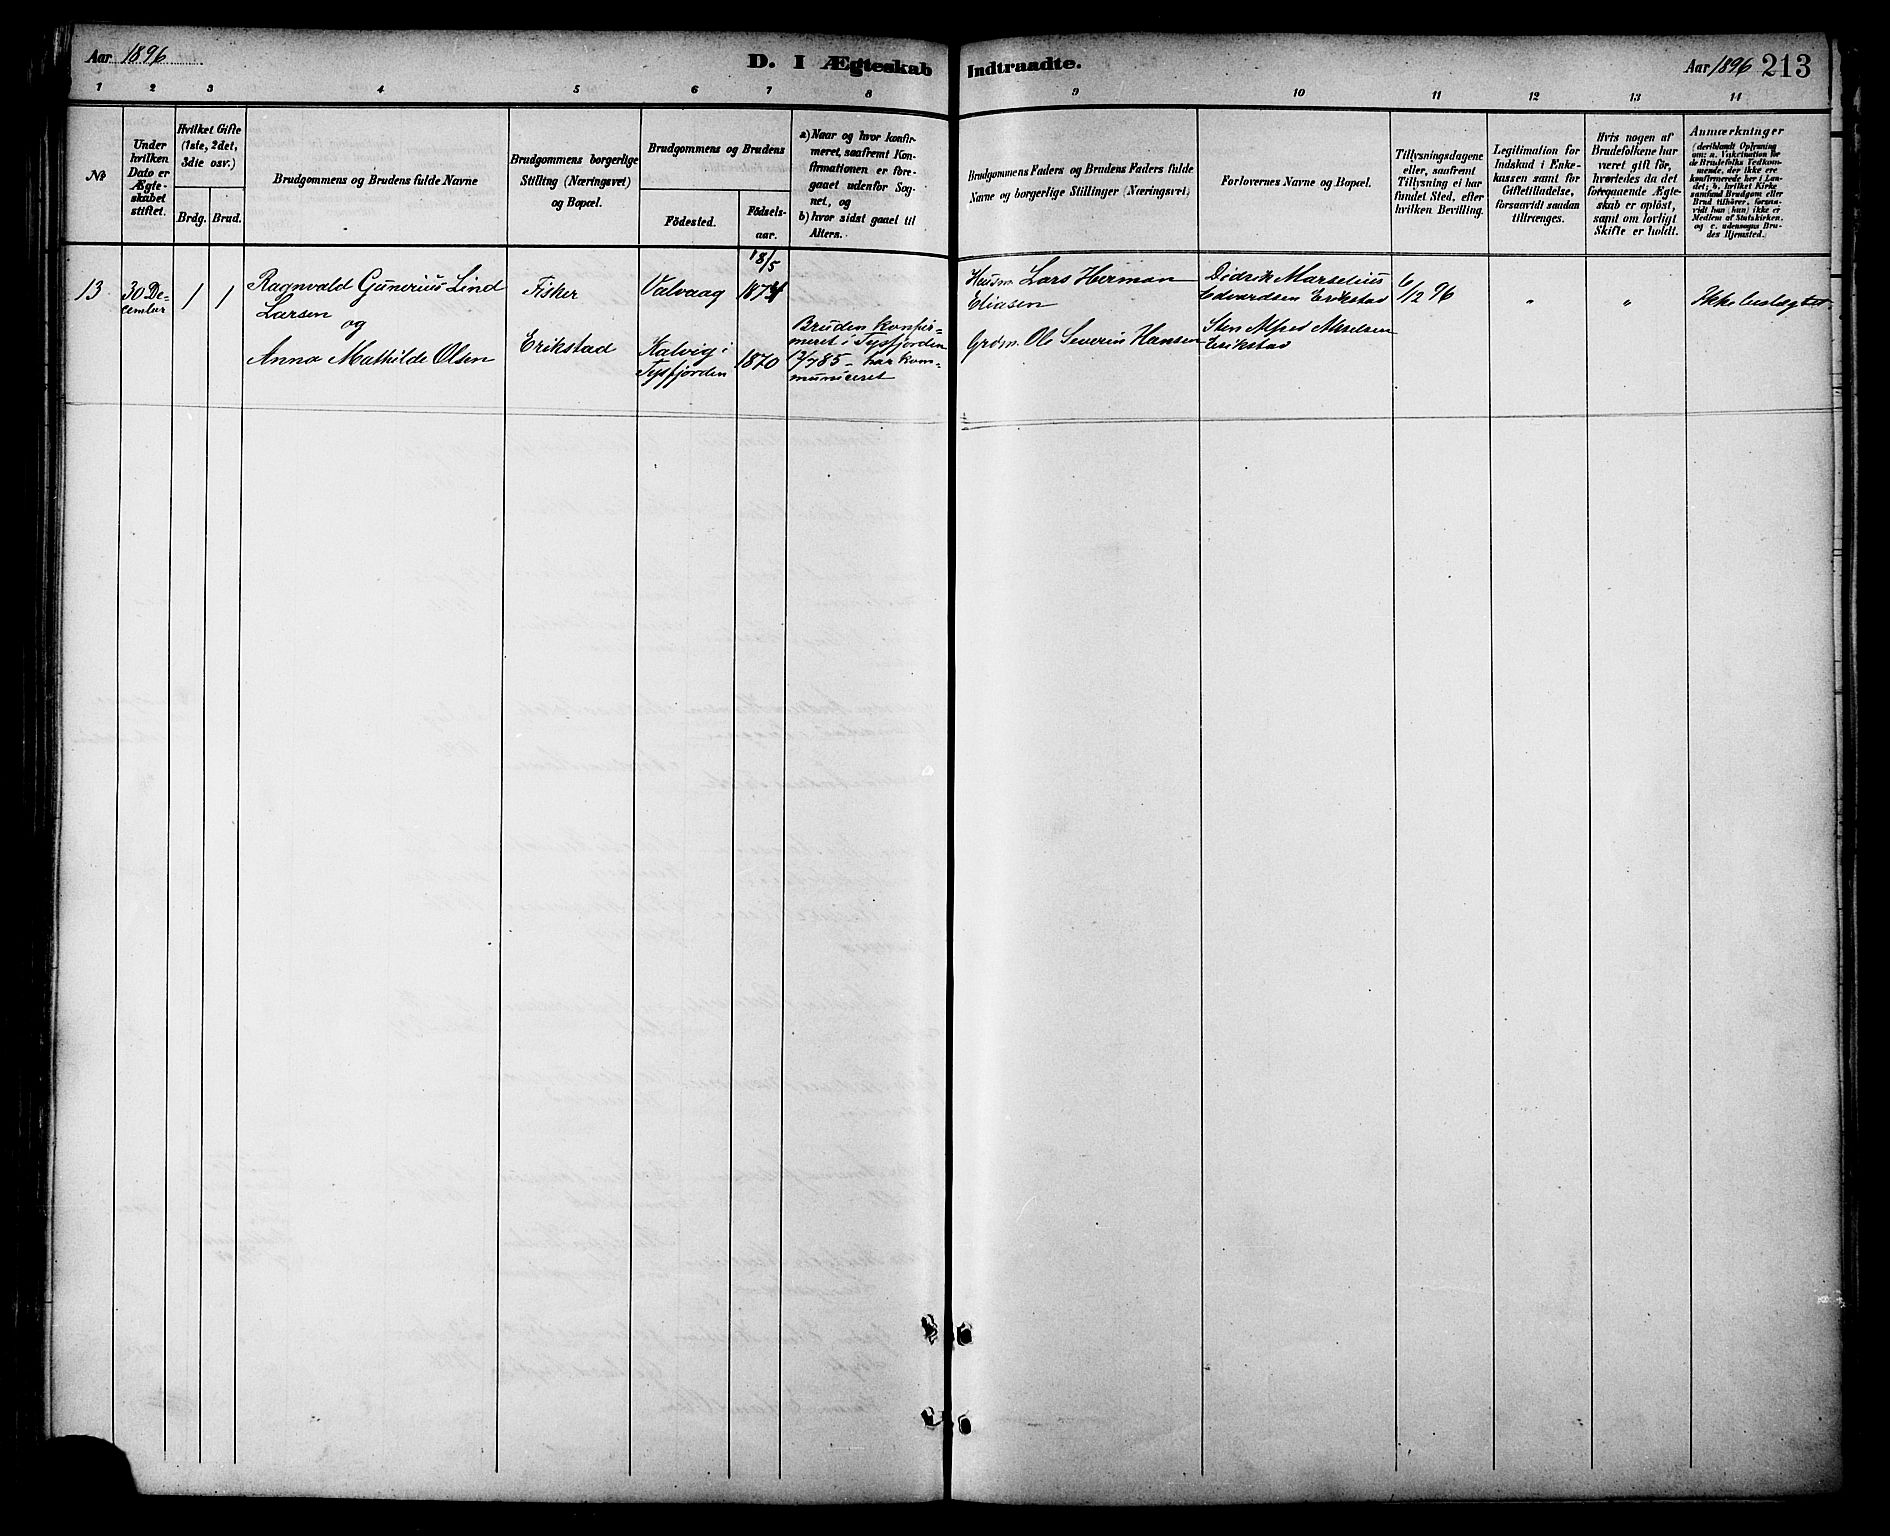 Aar 1896
D. I Ægteskab Indtraadte.
Aar 1896 213
1 2 3 4 5 6 7 8 9 10 11 12 13 14
No
Under
hvilken
Dato er
Ægte-
skabet
stiftet.
Hvilket Gifte
(1ste, 2det,
3die osv.)
Brdg. Brud.
Brudgommens og Brudens fulde Navne
Brudgommens borgerlige
Stilling (Næringsvei)
og Bopæl.
Brudgommens og Brudens
Födested.
Födsels-
aar.
a) Naar og hvor konfir-
meret, saafremt Kon-
firmationen er fore-
gaaet udenfor Sog-
net, og
b) hvor sidst gaaet til
Alters.
Brudgommens Faders og Brudens Faders fulde
Navne og borgerlige Stillinger (Næringsvei)
Forlovernes Navne og Bopæl.
Tillysningsdagene
eller, saafremt
Tillysning ei har
fundet Sted, efter
hvilken Bevilling.
Legitimation for
Indskud i Enke-
kassen samt for
Giftetilladelse,
forsaavidt saadan
tiltrænges.
Hvis nogen af
Brudefolkene har
været gift för,
hvorledes da det
foregaaende Ægte-
skab er oplöst,
samt om lovligt
Skifte er holdt.
Anmærkninger
(deriblandt Oplysning
om: a. Vakcination for
de Brudefolks Vedkom-
mende, der ikke ere
konfirmerede her i Lan-
det; b. hvilket Kirke-
samfund Brudgom eller
Brud tilhører, forsaa-
vidt han (hun) ikke er
Medlem af Statskirken.
og c. udensogns Bru-
des Hjemsted.)
13
30 De-
cember
1 1
Ragnvald Gunerius Lind
Larsen
og
Anna Mathilde Olsen
Fisker
Erikstad
Valvaag
Kalvig i
Tysfjorden
18/5
1874
1870
Bruden konfir-
meret i Tysfjorden
12/7 85 - har kom-
municeret
Husm. Lars Herman
Eliasen
Grdm. Ole Severin Hansen
Didrik Marselius
Edvardsen Erikstad
Sten Alfred Akselsen
Erikstad
6/12 96
"
"
Ikke beslægtet